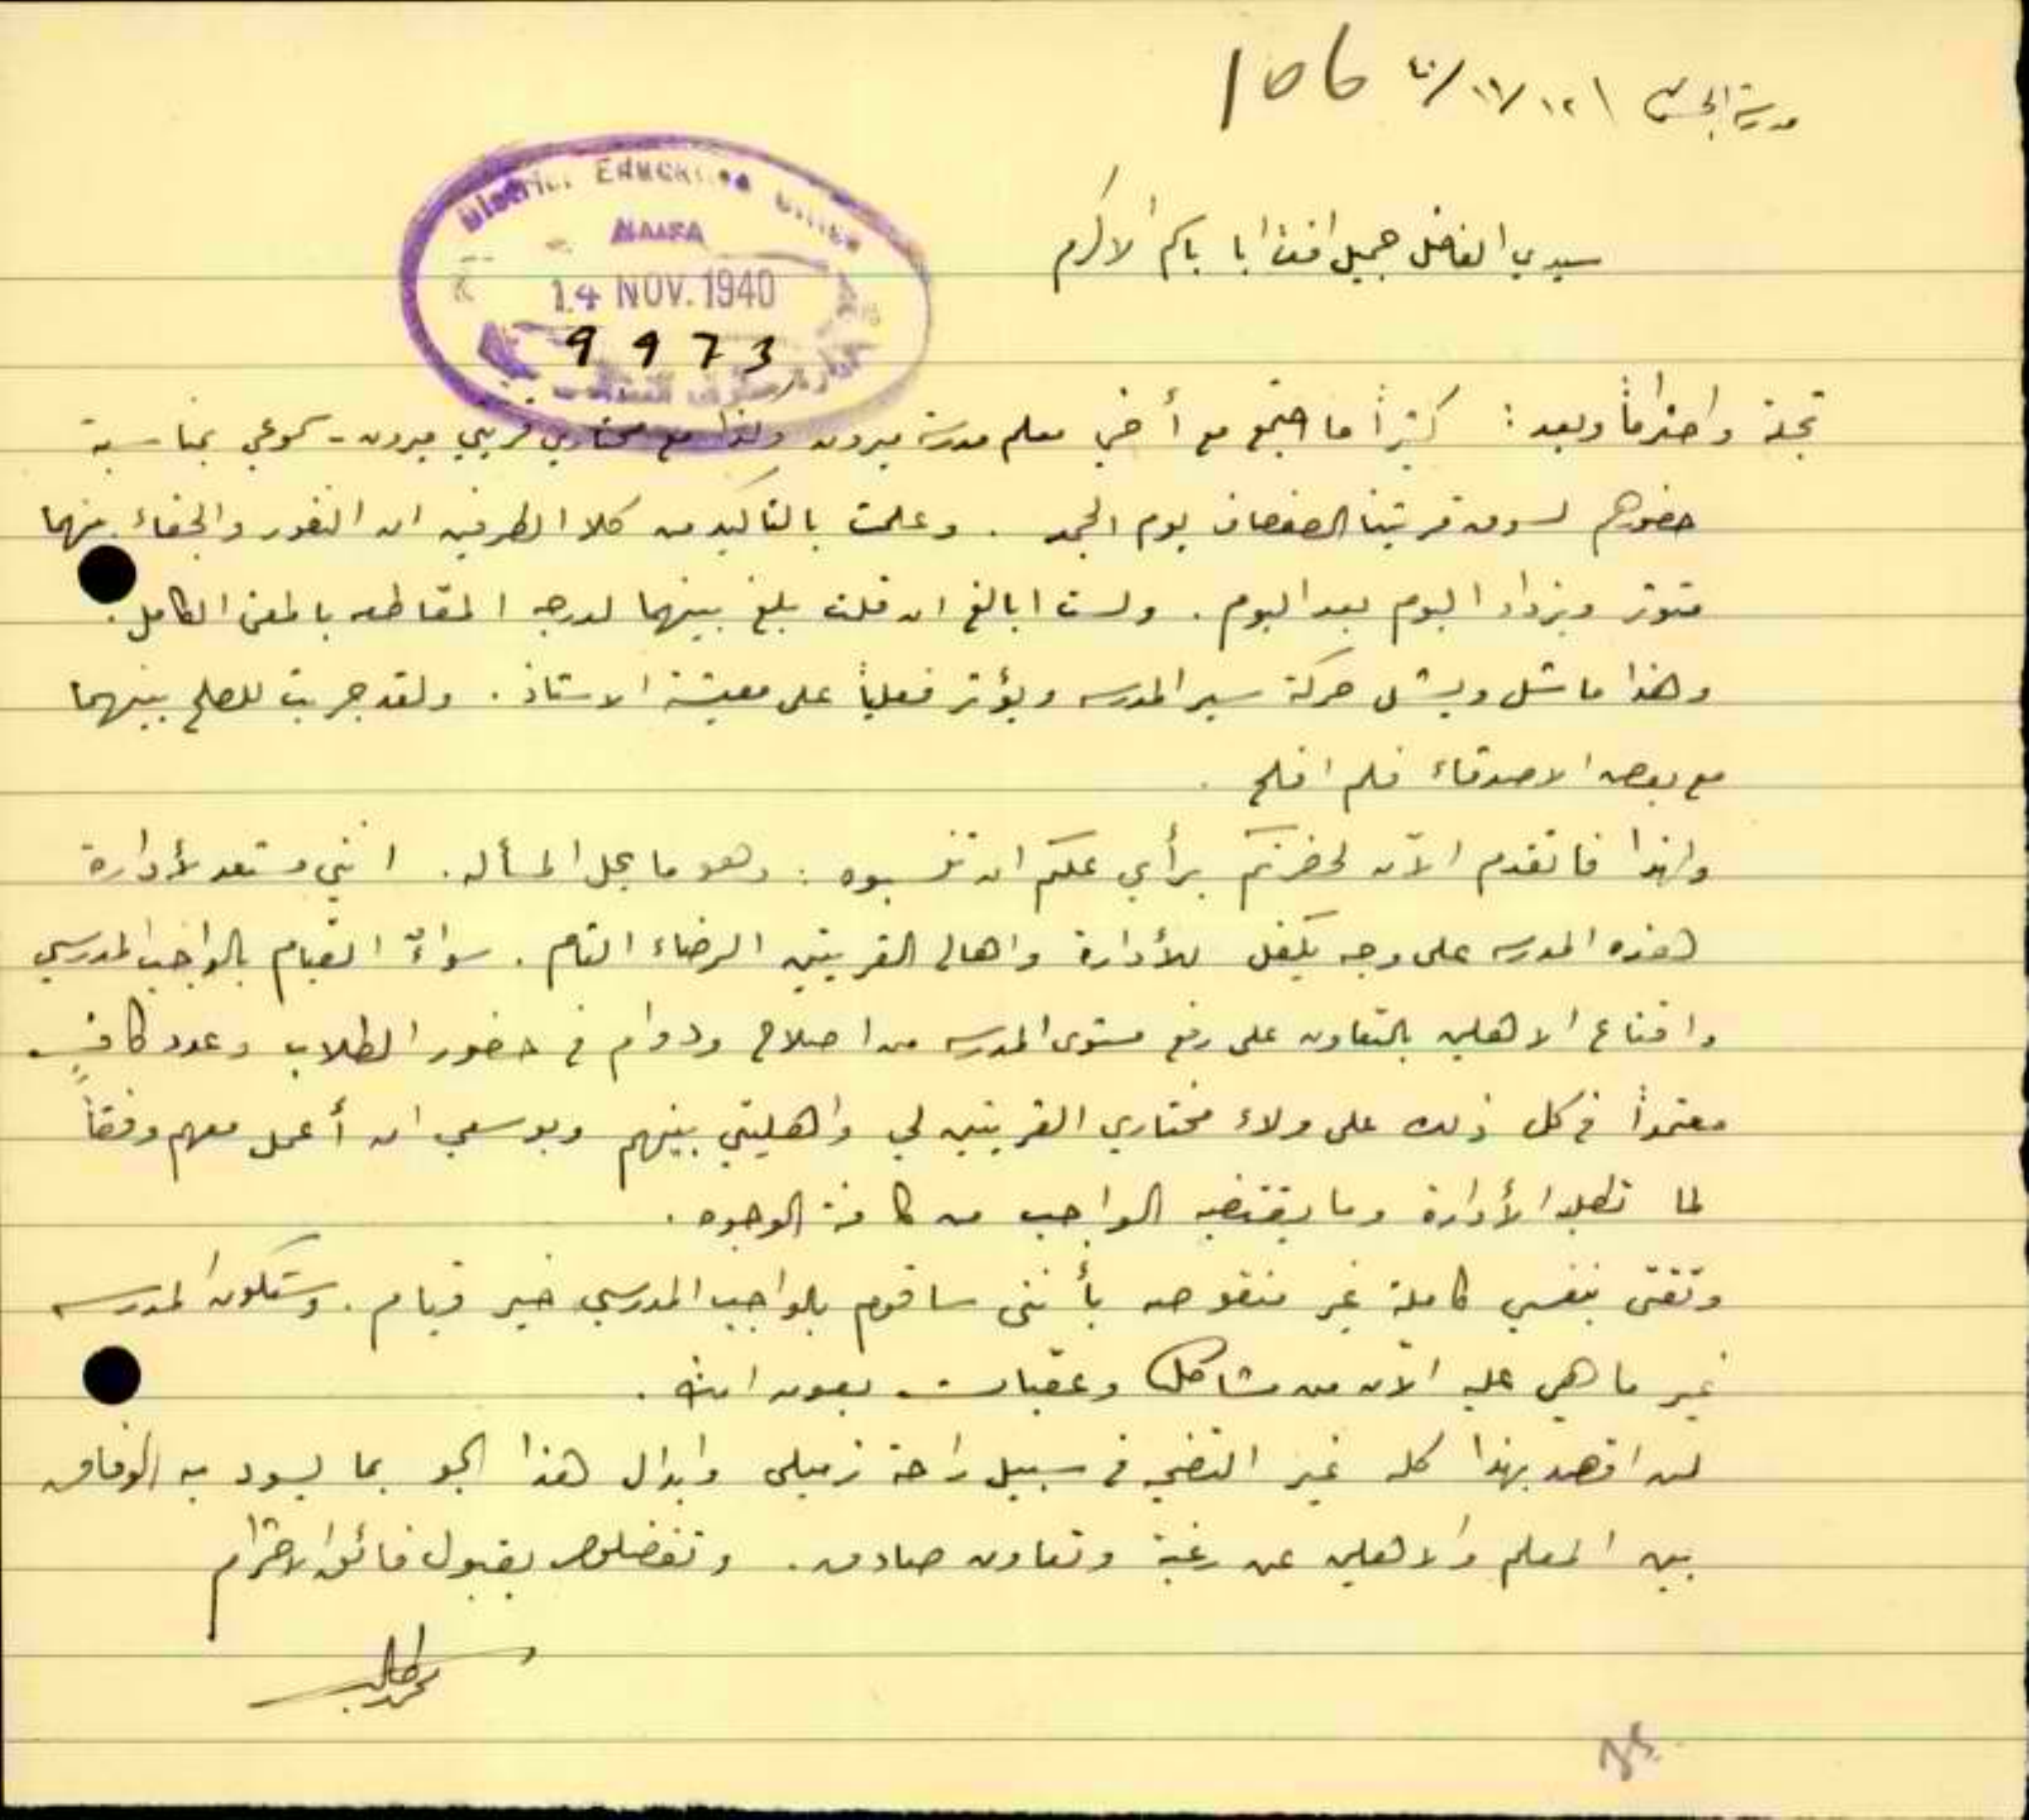 مدرسة الجش ١٢/١١/٤٠ 106
District Education Office
HAIFA
14 NOV. 1940
9973
سيدي الفاضل جميل افندي الاكرم
تجلة واحتراماً وبعد: كثيراً ما اجتمع مع أخي معلم مدرسة ميرون وكذا مع مختاري قريتي ميرون - سموعي بمناسبة
حضورهم لسوق قريتنا الصفصاف يوم الجمعه. وعلمت بالتأكيد من كلا الطرفين ان النفور والجفاء بينهما
متوتر ويزداد اليوم بعد اليوم. ولست ابالغ ان قلت بلغ بينهما لدرجه المقاطعه بالمعنى الكامل.
وهذا ما شل ويشل حركة سير المدرسه ويؤثر فعلياً على معيشة الاستاذ. ولقد جربت للصلح بينهما
مع بعض الاصدقاء فلم افلح.
ولهذا فاتقدم الآن لحضرتكم برأي علكم ان تنسبوه: وهو ما يحل المسأله. انني مستعد لأدارة
هذه المدرسه على وجه يكفل للأدارة واهالي القريتين الرضاء التام. سواءً القيام بالواجب المدرسي
واقناع الاهلين بالتعاون على رفع مستوى المدرسه من اصلاح ودوام في حضور الطلاب وعدد كافٍ
معتمداً في كل ذلك على ولاء مختاري القريتين لي واهليتي بينهم وبوسعي ان أعمل معهم وفقاً
لما تطلبه الأدارة وما يقتضيه الواجب من كافة الوجوه.
وثقتي بنفسي كاملة غير منقوصه بأنني ساقوم بالواجب المدرسي خير قيام. وستكون المدرسه
غير ما هي عليه الآن من مشاكل وعقبات بعون الله.
لست اقصد بهذا كله غير التضحيه في سبيل راحة زميلي وابدال هذا الجو بما يسود به الوفاق
بين المعلم والاهلين عن رغبة وتعاون صادق. وتفضلوا بقبول فائق الاحترام